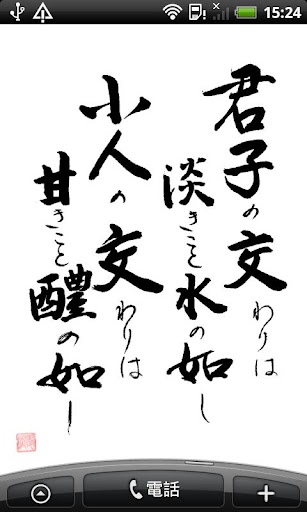 15:24
君子の交わりは
淡きこと水の如し
小人の交わりは
甘きこと醴の如し
電話